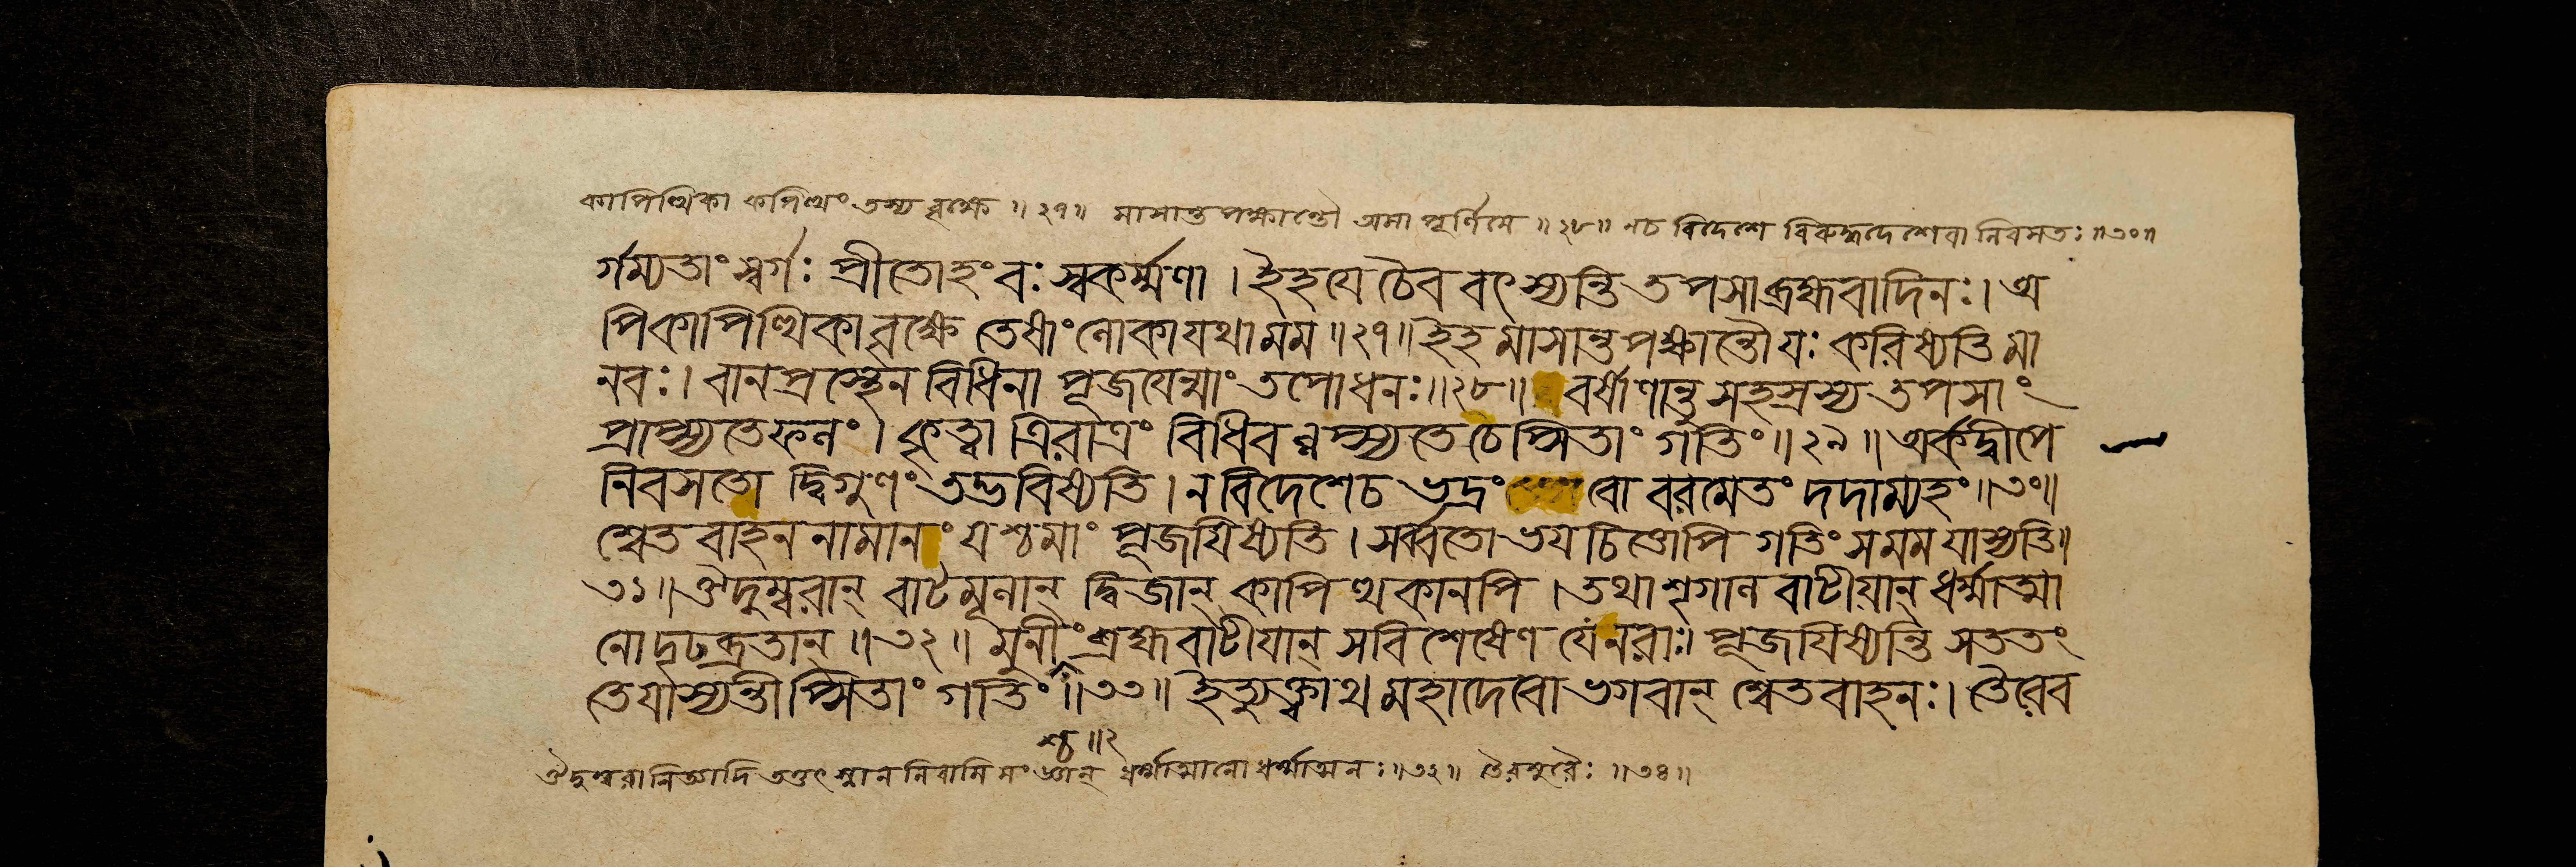 কাপিত্থিকা কপিত্থং তস্য বৃক্ষে ॥ ২৭ ॥ মাসান্তপক্ষান্তৌ অমা পূর্ণিমে ॥ ২৮ ॥ নচ বিদেশে বিরুদ্ধদেশেবা নিবসতঃ ॥ ৩০ ॥
র্গম্যতাং স্বর্গঃ প্রীতোহং বঃ স্বকর্ম্মণা । ইহযে চৈব বৎস্যন্তি তপসা ব্রহ্মবাদিনঃ । অ
পিকাপিত্থিকাবৃক্ষে তেষাং লোকা যথা মম ॥ ২৭ ॥ ইহ মাসান্তপক্ষান্তৌ যঃ করিষ্যতি মা
নবঃ । বানপ্রস্থেন বিধিনা পূজযেন্মাং তপোধনঃ ॥ ২৮ ॥ বর্ষাণান্তু সহস্রস্য তপসাং
প্রাপ্স্যতে ফলং । কৃত্বা ত্রিরাত্রং বিধিবল্লপ্স্যতে চেপ্সিতাং গতিং ॥ ২৯ ॥ অর্কদ্বীপে
নিবসতো দ্বিগুণং তদ্ভবিষ্যতি । ন বিদেশেচ ভদ্রং বো বরমেতং দদাম্যহং ॥ ৩০ ॥
শ্বেতবাহননামানং যশ্চ মাং পূজযিষ্যতি । সর্ব্বতো ভযচিত্তোপি গতিং স মম যাস্যতি ॥
৩১ ॥ ঔদুম্বরান্ বাটমূলান্ দ্বিজান্ কাপিত্থকানপি । তথা শৃগালবাটীয়ান্ ধর্ম্মাত্মা
নো দৃঢব্রতান্ ॥ ৩২ ॥ মুনীং ব্রহ্মবাটীযান্ সবিশেষেণ যে নরাঃ । পূজযিষ্যন্তি সততং
তে যাস্যন্তীপ্সিতাং গতিং ॥ ৩৩ ॥ ইত্যুক্ত্বাথ মহাদেবো ভগবান্ শ্বেতবাহনঃ । তৈরেব
শ্চ ॥ ২
ঔদুম্বরানিত্যাদি তত্তৎ স্থান নিবাসি ধর্ম্মাত্মানো ধর্ম্মাত্মনঃ ॥ ৩২ ॥ তৈরসুরৈঃ ॥ ৩৪ ॥